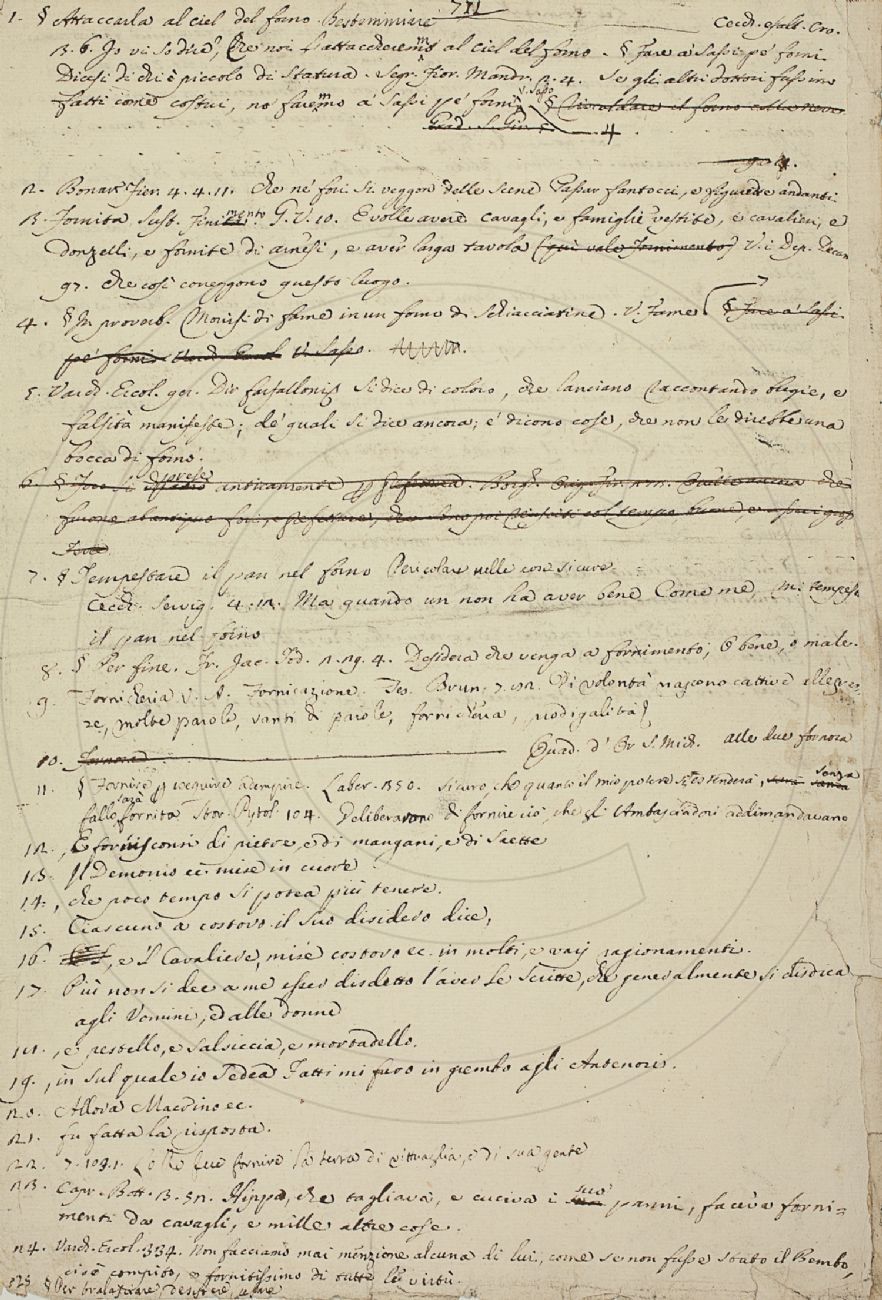 711
1. § Attaccarla al ciel del forno. Bestemmiare Cecch. esalt. Cro.
3. 6. Io vi so dire, che noi l'attaccheremo al ciel del forno. § Fare a' sassi pe' forni
Dicesi di chi è piccolo di statura. Segr. Fior. Mandr. 2. 4. Se gli altri dottori fussino
fatti come costui, noi faremmo a' sassi pe' forni V. Sasso
4
2. Bonar. Fier. 4. 4. 11. Che ne' fori si veggon delle scene Passar fantocci, e figurette andanti.
3. Fornita Sust. Finimento. G. V. 10. E volle avere cavagli, e famiglie vestite, e cavalieri, e
donzelli, e fornite di arnesi, e aver larga tavola (qui vale fornimento) V. i Dep. Decam
97. che così coreggono questo luogo.
4. § In proverb. Morirsi di fame in un forno di schiacciatine. V. Fame § Fare a' sassi
pe' forni V. Sasso.
5. Varch. Ercol. 901. Dir farfalloni si dice di coloro, che lanciano raccontando bugie, e
falsità manifeste; de' quali si dice ancora; e' dicono cose, che non le direbbe una
bocca di forno.
6. § anticamente che
furono
7. § Tempestare il pan nel forno Pericolare nelle cose sicure
Cecch. Servig. 4. 12. Ma quando un non ha aver bene Come me, mi tempesta
il pan nel forno
8. § Per fine. Fr. Jac. Tod. 2. 29. 4. Desidera che venga a fornimento, O bene, o male.
9. Fornicheria V. A. Fornicazione. Tes. Brun. 7. Di volontà nascono cattive allegrez-
ze, molte parole, vanti di parole, fornicheria, prodigalità
10. Quad. d' Or S. Mich. alle due fornora
11. § Fornire eseguire adempire. Laber. 350. sicuro, che quanto il mio potere si estenderà, senza
fallo sarà fornito. Stor. Pistol. 104. Deliberarono di fornire ciò, che gli Ambasciadori addimandavano
12. , E fornisconsi di pietre, e di mangani, e di saette
13. Il Demonio ec. mise in cuore
14. , che poco tempo si potea più tenere.
15. Ciascuno a costoro il suo disidero dice,
16. , e il Cavaliere, mise costoro ec. in molti, e varj ragionamenti.
17. Più non si dee a me esser disdetto l'averle scritte, che generalmente si disdica
agli Uomini, ed alle donne
18. , e pestello, e salsiccia, e mortadello.
19. , in sul quale io sedea Fatti mi furo in grembo agli Antenori.
20. Allora Macchino ec.
21. fu fatta la risposta.
22. 7. 109. 1. fornire la terra di vittuaglia, e di sua gente
23. Capr. Bott. 3. 52. Hippia, che tagliava, e cuciva i suoi panni, faceva forni-
menti da cavagli, e mille altre cose.
24. Varch. Ercol. 334. Non facciamo mai menzione alcuna di lui, come se non fusse stato il Bembo,
ciò è compito, e fornitissimo di tutte le virtù.
325 § Per tralasciare, desistere,